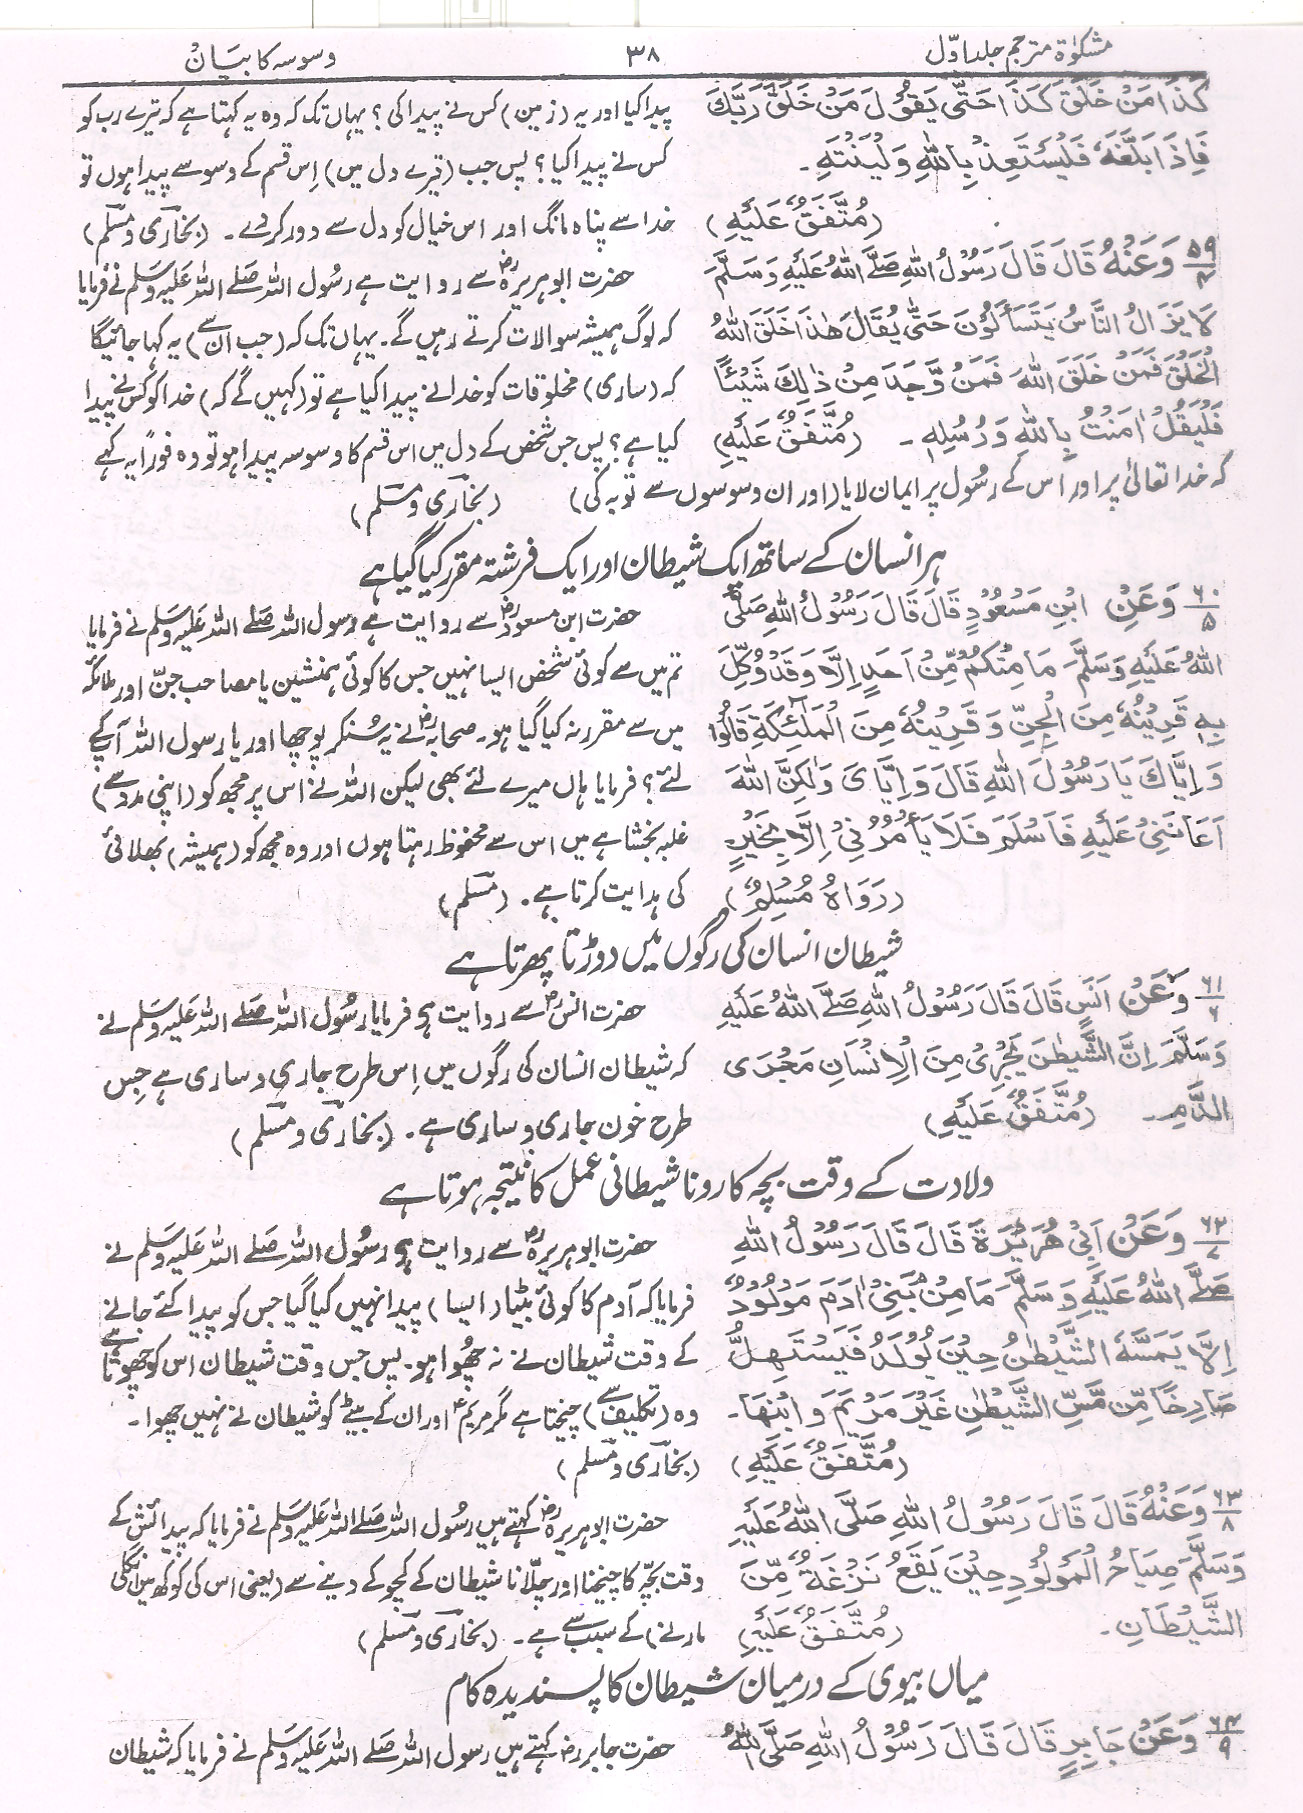 مشکوٰۃ مترجم جلد اوّل ۳۸ وسوسہ کا بیَانْ
کَذَا مَنْ خَلَقَ کَذَا حَتّٰی یَقُوْلَ مَنْ خَلَقَ رَبَّکَ
فَاِذَا بَلَغَهٗ فَلْیَسْتَعِذْ بِاللّٰهِ وَلْیَنْتَهِ۔
(مُتَّفَقٌ عَلَیْهِ)
پیدا کیا اور یہ (زمین) کس نے پیدا کی؟ یہاں تک کہ وہ یہ کہتا ہے کہ تیرے رب کو
کس نے پیدا کیا؟ پس جب (تیرے دل میں) اِس قسم کے وسوسے پیدا ہوں تو
خدا سے پناہ مانگ اور اس خیال کو دل سے دور کر دے۔ (بخاری و مسلم)
۵۹/۴ وَعَنْهُ قَالَ قَالَ رَسُوْلُ اللّٰهِ صَلَّے اللّٰهُ عَلَیْهِ وَسَلَّمَ
لَا یَزَالُ النَّاسُ یَتَسَآءَلُوْنَ حَتّٰی یُقَالَ هٰذَا خَلَقَ اللّٰهُ
الْخَلْقَ فَمَنْ خَلَقَ اللّٰهَ فَمَنْ وَّجَدَ مِنْ ذٰلِکَ شَیْئًا
فَلْیَقُلْ اٰمَنْتُ بِاللّٰهِ وَرُسُلِهٖ۔ (مُتَّفَقٌ عَلَیْهِ)
حضرت ابوہریرہؓ سے روایت ہے رسُول اللہ صَلے اللہ عَلیہ وسَلم نے فرمایا
کہ لوگ ہمیشہ سوالات کرتے رہیں گے۔ یہاں تک کہ (جب ان سے) یہ کہا جائیگا
کہ (ساری) مخلوقات کو خدا نے پیدا کیا ہے تو (کہیں گے کہ) خدا کو کس نے پیدا
کیا ہے؟ پس جس شخص کے دل میں اس قسم کا وسوسہ پیدا ہو تو وہ فورًا یہ کہے
کہ خدا تعالیٰ پر اور اس کے رسُول پر ایمان لایا (اور ان وسوسوں سے توبہ کی) (بخاری و مسلم)
ہر انسان کے ساتھ ایک شیطان اور ایک فرشتہ مقرر کیا گیا ہے
۶۰/۵ وَعَنِ ابْنِ مَسْعُوْدٍ قَالَ قَالَ رَسُوْلُ اللّٰهِ صَلَّی
اللّٰهُ عَلَیْهِ وَسَلَّمَ مَا مِنْکُمْ مِّنْ اَحَدٍ اِلَّا وَقَدْ وُکِّلَ
بِهٖ قَرِیْنُهٗ مِنَ الْجِنِّ وَقَرِیْنُهٗ مِنَ الْمَلٰٓئِکَةِ قَالُوْا
وَاِیَّاکَ یَا رَسُوْلَ اللّٰهِ قَالَ وَاِیَّایَ وَلٰکِنَّ اللّٰهَ
اَعَانَنِیْ عَلَیْهِ فَاَسْلَمَ فَلَا یَأْمُرُنِیْ اِلَّا بِخَیْرٍ
(رَوَاهُ مُسْلِمٌ)
حضرت ابن مسعودؓ سے روایت ہے رسول اللہ صَلے اللہ عَلیہ وسَلم نے فرمایا
تم میں سے کوئی شخص ایسا نہیں جس کا کوئی ہمنشین یا مصاحب جنّ اور ملائکہ
میں سے مقرر نہ کیا گیا ہو۔ صحابہؓ نے یہ سُنکر پوچھا اور یا رسول اللہ آپ کے
لئے؟ فرمایا ہاں میرے لئے بھی لیکن اللہ نے اس پر مجھ کو (اپنی مدد سے)
غلبہ بخشا ہے میں اس سے محفوظ رہتا ہوں اور وہ مجھ کو (ہمیشہ) بھلائی
کی ہدایت کرتا ہے۔ (مسلم)
شیطان انسان کی رگوں میں دوڑتا پھرتا ہے
۶۱/۶ وَعَنْ اَنَسٍ قَالَ قَالَ رَسُوْلُ اللّٰهِ صَلَّے اللّٰهُ عَلَیْهِ
وَسَلَّمَ اِنَّ الشَّیْطٰنَ یَجْرِیْ مِنَ الْاِنْسَانِ مَجْرَی
الدَّمِ۔ (مُتَّفَقٌ عَلَیْهِ)
حضرت انسؓ سے روایت ہے فرمایا رسُول اللہ صَلے اللہ عَلیہ وسَلم نے
کہ شیطان انسان کی رگوں میں اِس طرح جاری و ساری ہے جس
طرح خون جاری و ساری ہے۔ (بخاری و مسلم)
ولادت کے وقت بچہ کا رونا شیطانی عمل کا نتیجہ ہوتا ہے
۶۲/۷ وَعَنْ اَبِیْ هُرَیْرَةَ قَالَ قَالَ رَسُوْلُ اللّٰهِ
صَلَّے اللّٰهُ عَلَیْهِ وَسَلَّمَ مَا مِنْ بَنِیْ اٰدَمَ مَوْلُوْدٌ
اِلَّا یَمَسُّهُ الشَّیْطٰنُ حِیْنَ یُوْلَدُ فَیَسْتَهِلُّ
صَارِخًا مِّنْ مَّسِّ الشَّیْطٰنِ غَیْرَ مَرْیَمَ وَابْنِهَا۔
(مُتَّفَقٌ عَلَیْهِ)
حضرت ابوہریرہؓ سے روایت ہے رسُول اللہ صَلے اللہ عَلیہ وسَلم نے
فرمایا کہ آدم کا کوئی بیٹا (ایسا) پیدا نہیں کیا گیا جس کو پیدا کئے جانے
کے وقت شیطان نے نہ چھُوا ہو۔ پس جس وقت شیطان اس کو چھوتا ہے
وہ (تکلیف سے) چیختا ہے مگر مریمؑ اور ان کے بیٹے کو شیطان نے نہیں چھوا۔
(بخاری و مسلم)
۶۳/۸ وَعَنْهُ قَالَ قَالَ رَسُوْلُ اللّٰهِ صَلَّی اللّٰهُ عَلَیْهِ
وَسَلَّمَ صِیَاحُ الْمَوْلُوْدِ حِیْنَ یَقَعُ نَزْغَةٌ مِّنَ
الشَّیْطَانِ۔ (مُتَّفَقٌ عَلَیْهِ)
حضرت ابوہریرہؓ کہتے ہیں رسُول اللہ صَلے اللہ عَلیہ وسَلم نے فرمایا کہ پیدائش کے
وقت بچّہ کا چیخنا اور چلّانا شیطان کے کچوکے دینے سے (یعنی اس کی کوکھ میں انگلی
مارنے) کے سبب سے ہے۔ (بخاری و مسلم)
میاں بیوی کے درمیان شیطان کا پسندیدہ کام
۶۴/۹ وَعَنْ جَابِرٍ قَالَ قَالَ رَسُوْلُ اللّٰهِ صَلَّی اللّٰهُ
حضرت جابرؓ کہتے ہیں رسول اللہ صَلے اللہ عَلیہ وسَلم نے فرمایا کہ شیطان